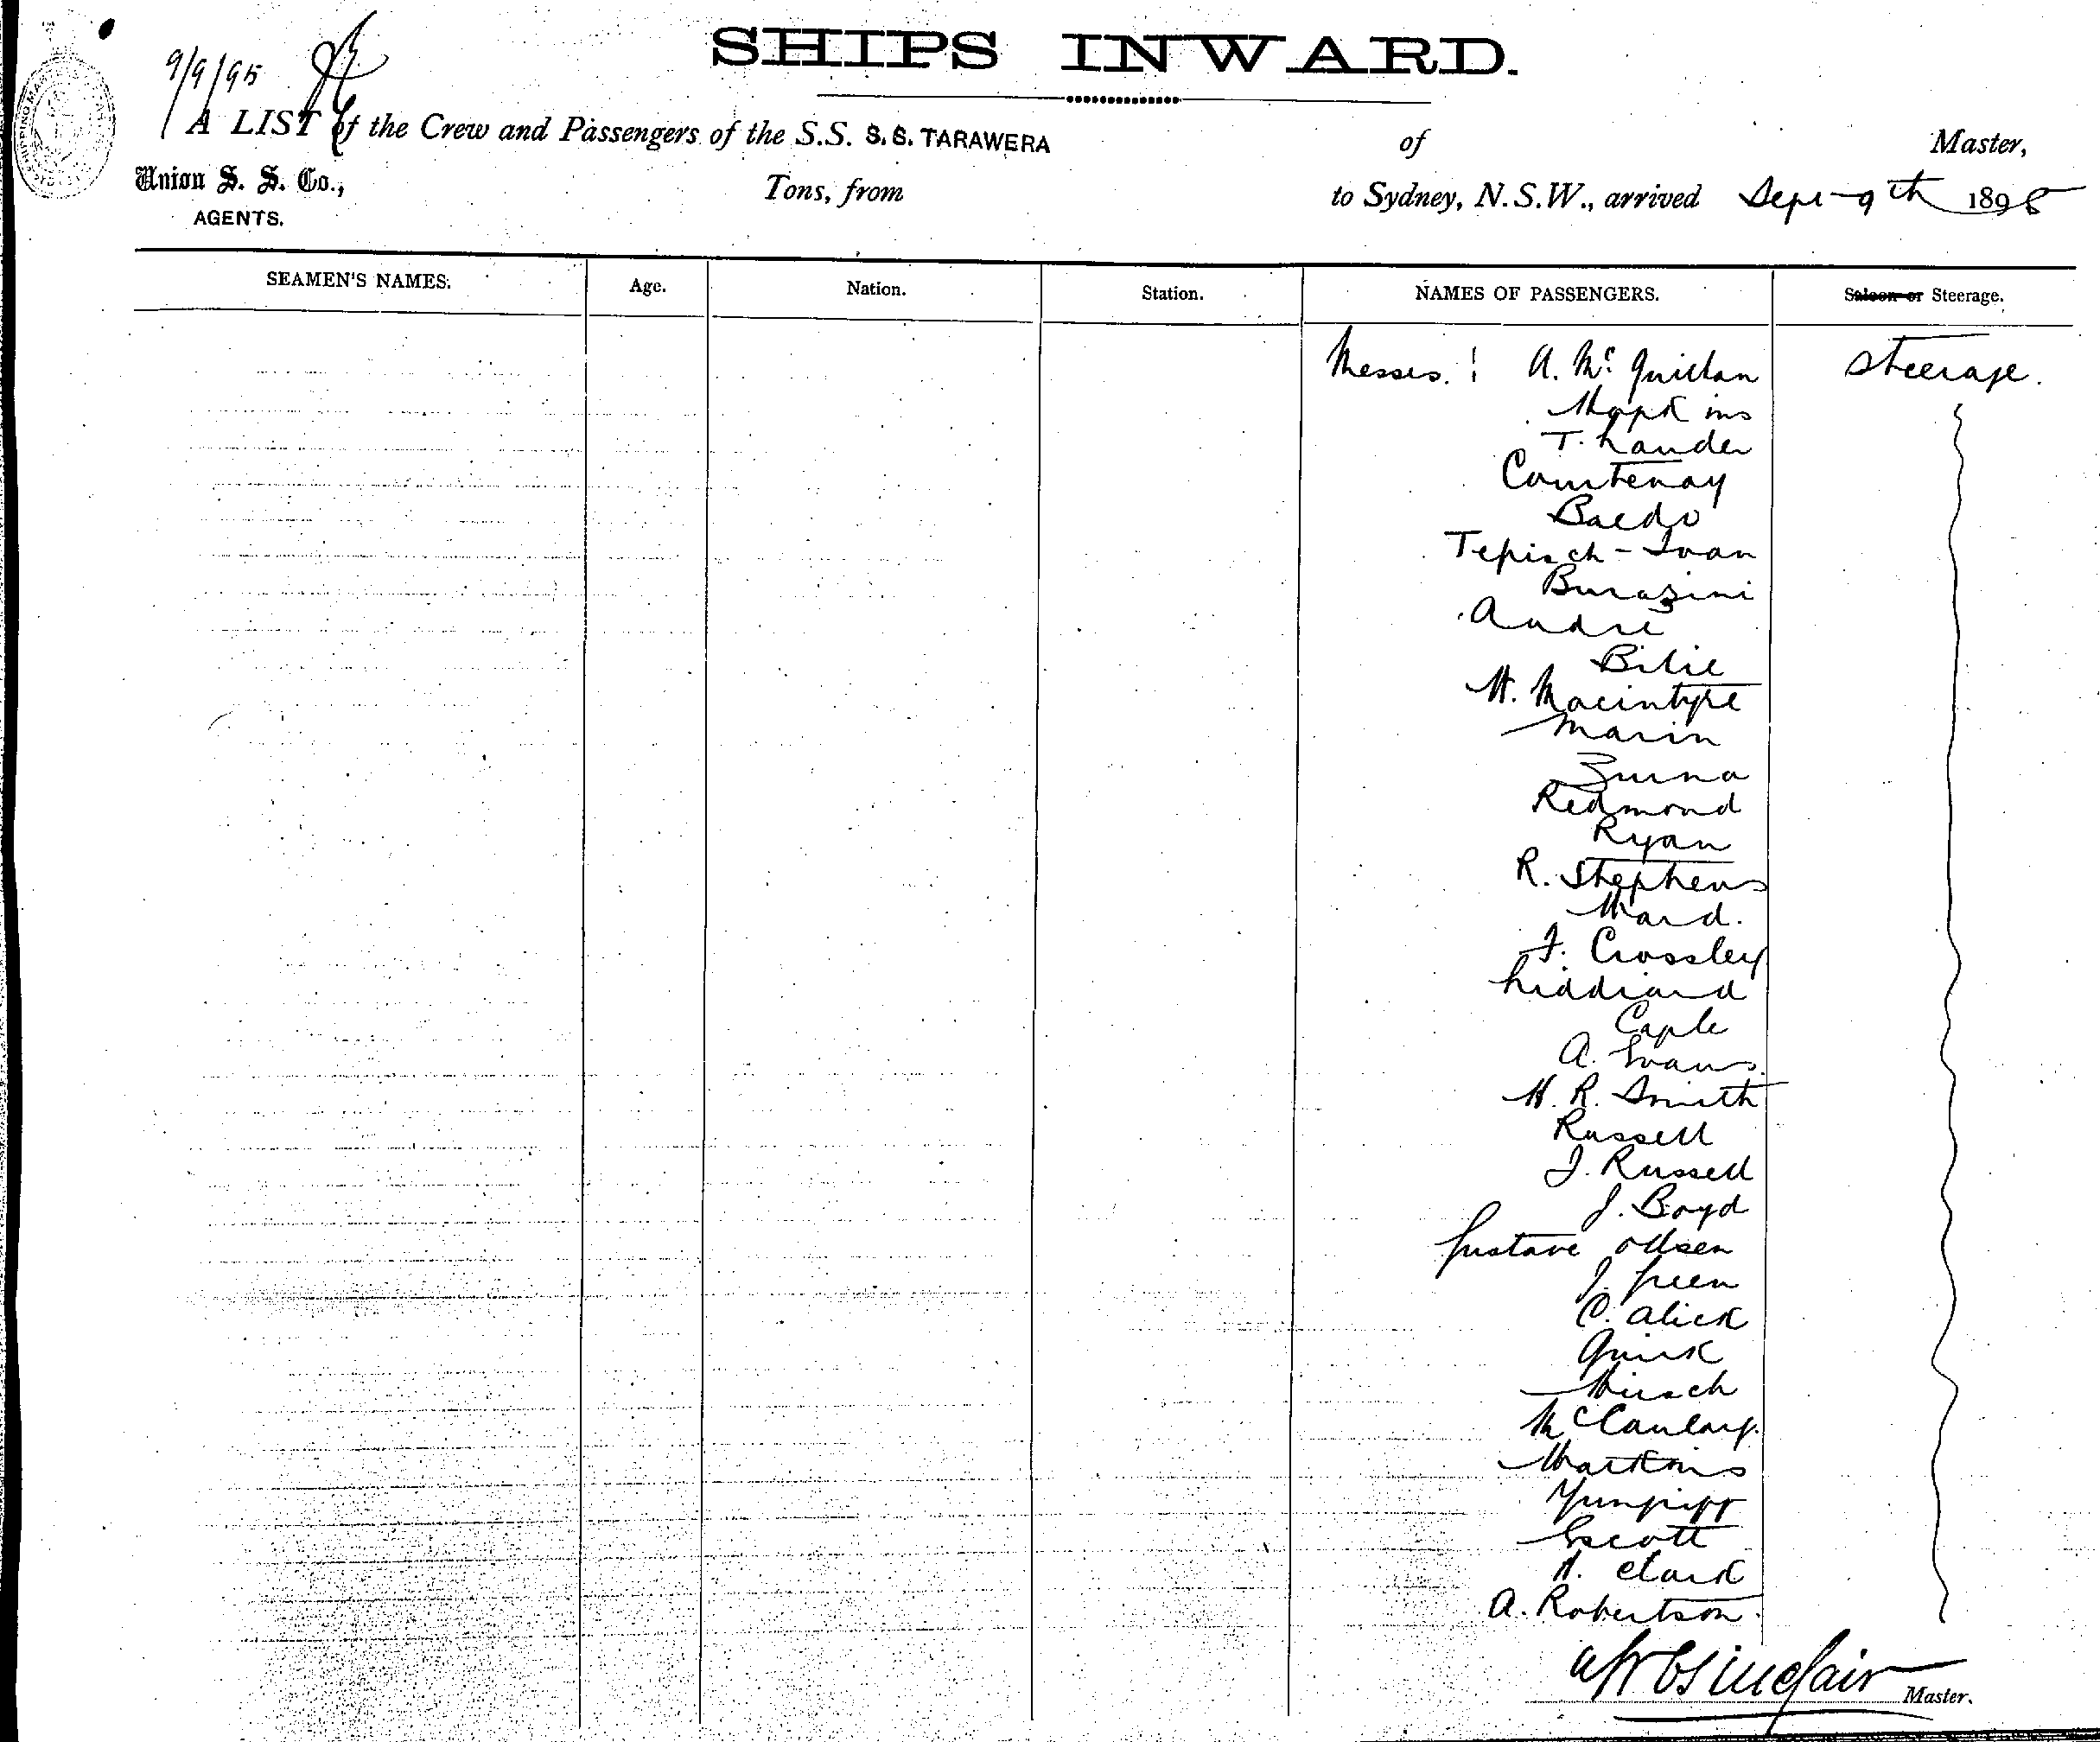 SHIPS INWARD.
9/9/95
A LIST of the Crew and Passengers of the S.S. S.S. TARAWERA of Master,
Union S. S. Co., Tons, from to Sydney, N.S.W., arrived Sept 9th 1895
AGENTS.
SEAMEN'S NAMES. Age. Nation. Station. NAMES OF PASSENGERS. Saloon or Steerage.
Messrs. : A. Mc Quillan Steerage.
Hopkins
T. Lauder
Courtenay
Baedo
Tepisch - Ivan
Burazini
Andre
Bilic
H. Macintyre
Marin
Zurna
Redmond
Ryan
R. Stephens
Ward.
F. Crossley
Liddiard
Caple
A. Evans.
H. R. Smith
Russell
J. Russell
J. Boyd
Gustave Ollsen
J. Green
C. Alick
Quirk
Hirsch
McCaulay.
Watkins
Escott
H. Clark
A. Robertson.
Sinclair Master.